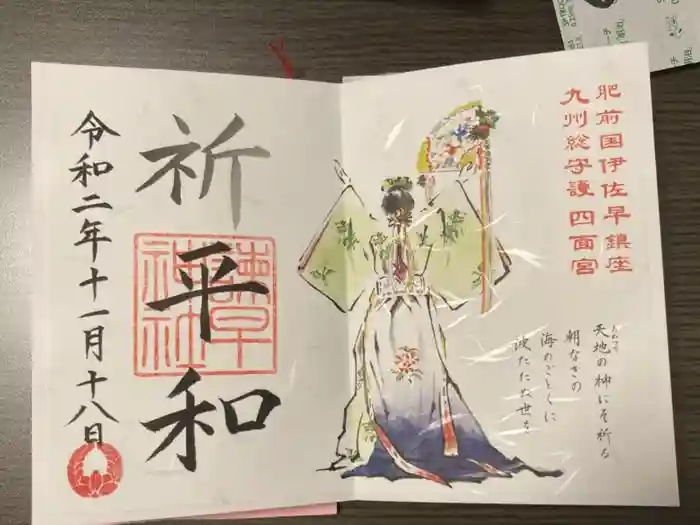 肥前国伊佐早鎮座
九州総守護 四面宮
天地の神にぞ祈る
朝なぎの
海のごとくに
波たたぬ世を
祈
平
和
諫早
神社
令和二年十一月十八日